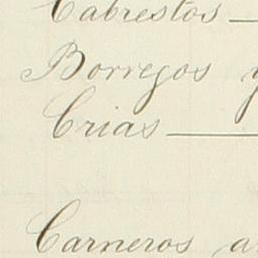 Cabrestos
Borregos y
Crias
Carneros a